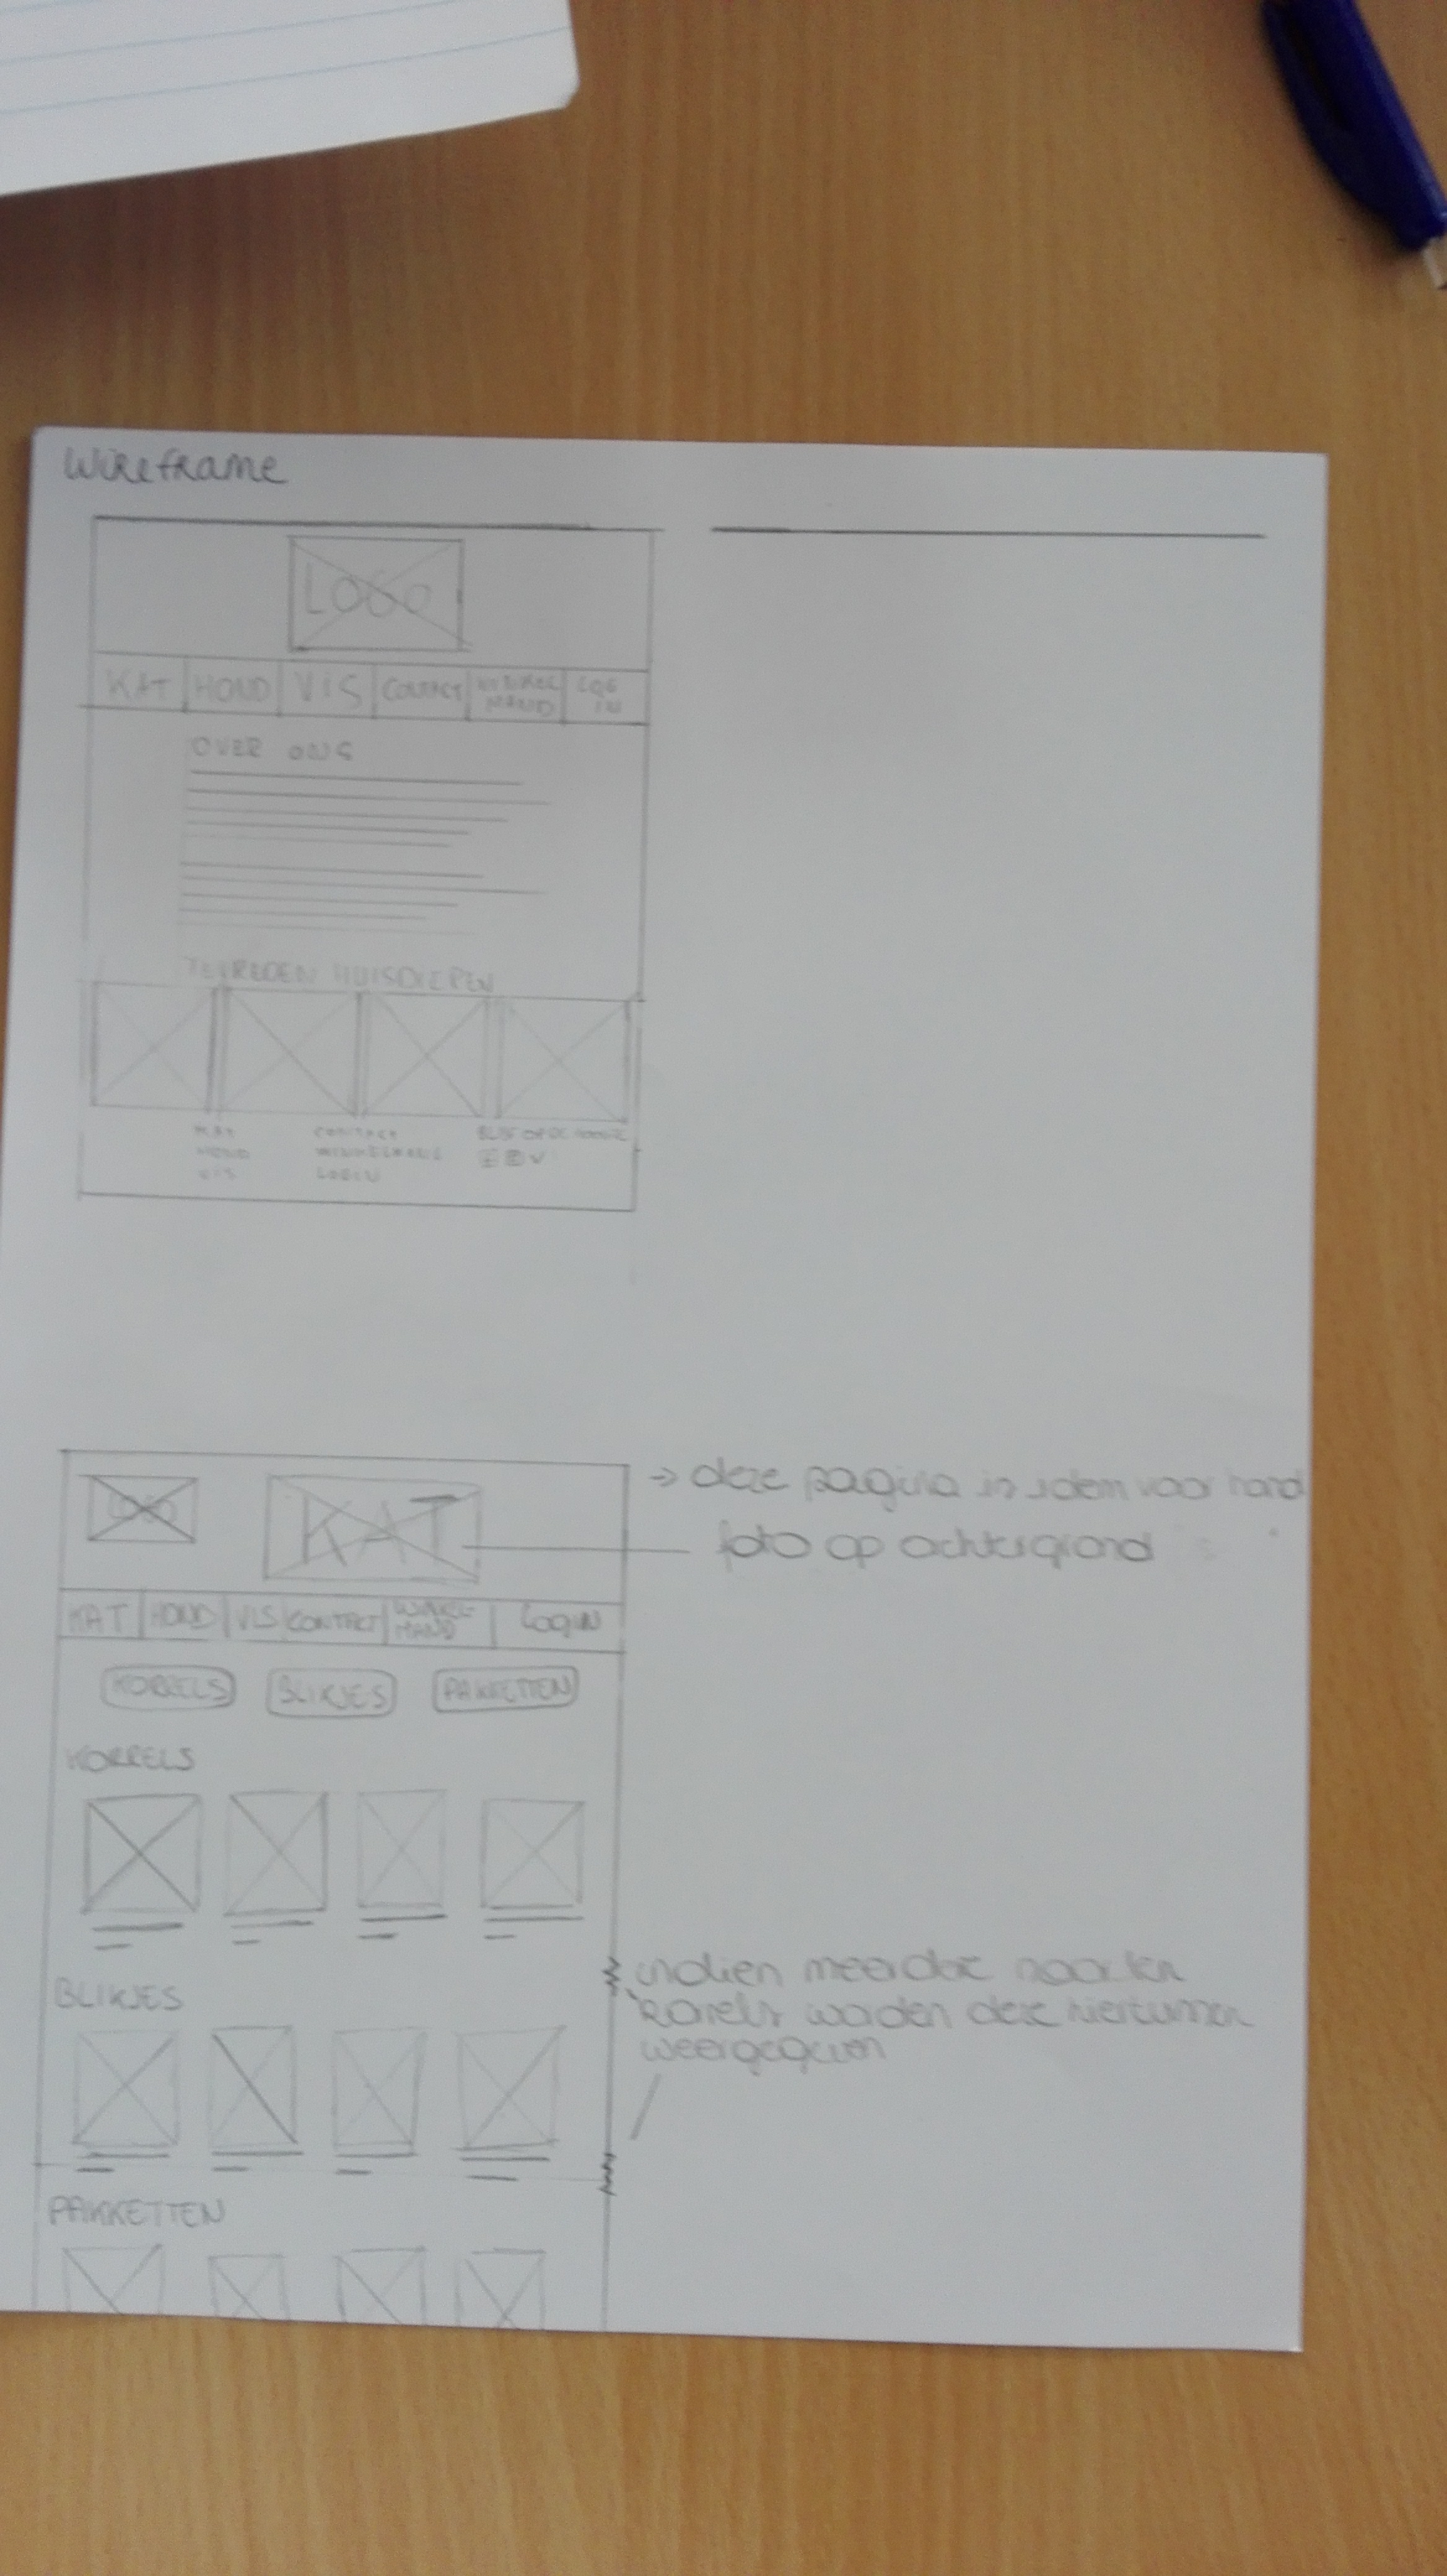 Wireframe
LOGO
KAT HOND VIS CONTACT WINKEL MAND LOG IN
OVER ONS
TEVREDEN HUISDIEREN
KAT CONTACT BLIJF OP DE HOOGTE
HOND WINKELMAND
VIS LOGIN
LOGO KAT
→ deze pagina is idem voor hond
foto op achtergrond
KAT HOND VIS CONTACT WINKEL MAND LOGIN
KORRELS BLIKJES PAKKETTEN
KORRELS
BLIKJES
indien meerdere soorten
korrels worden deze hiertussen
weergegeven
PAKKETTEN